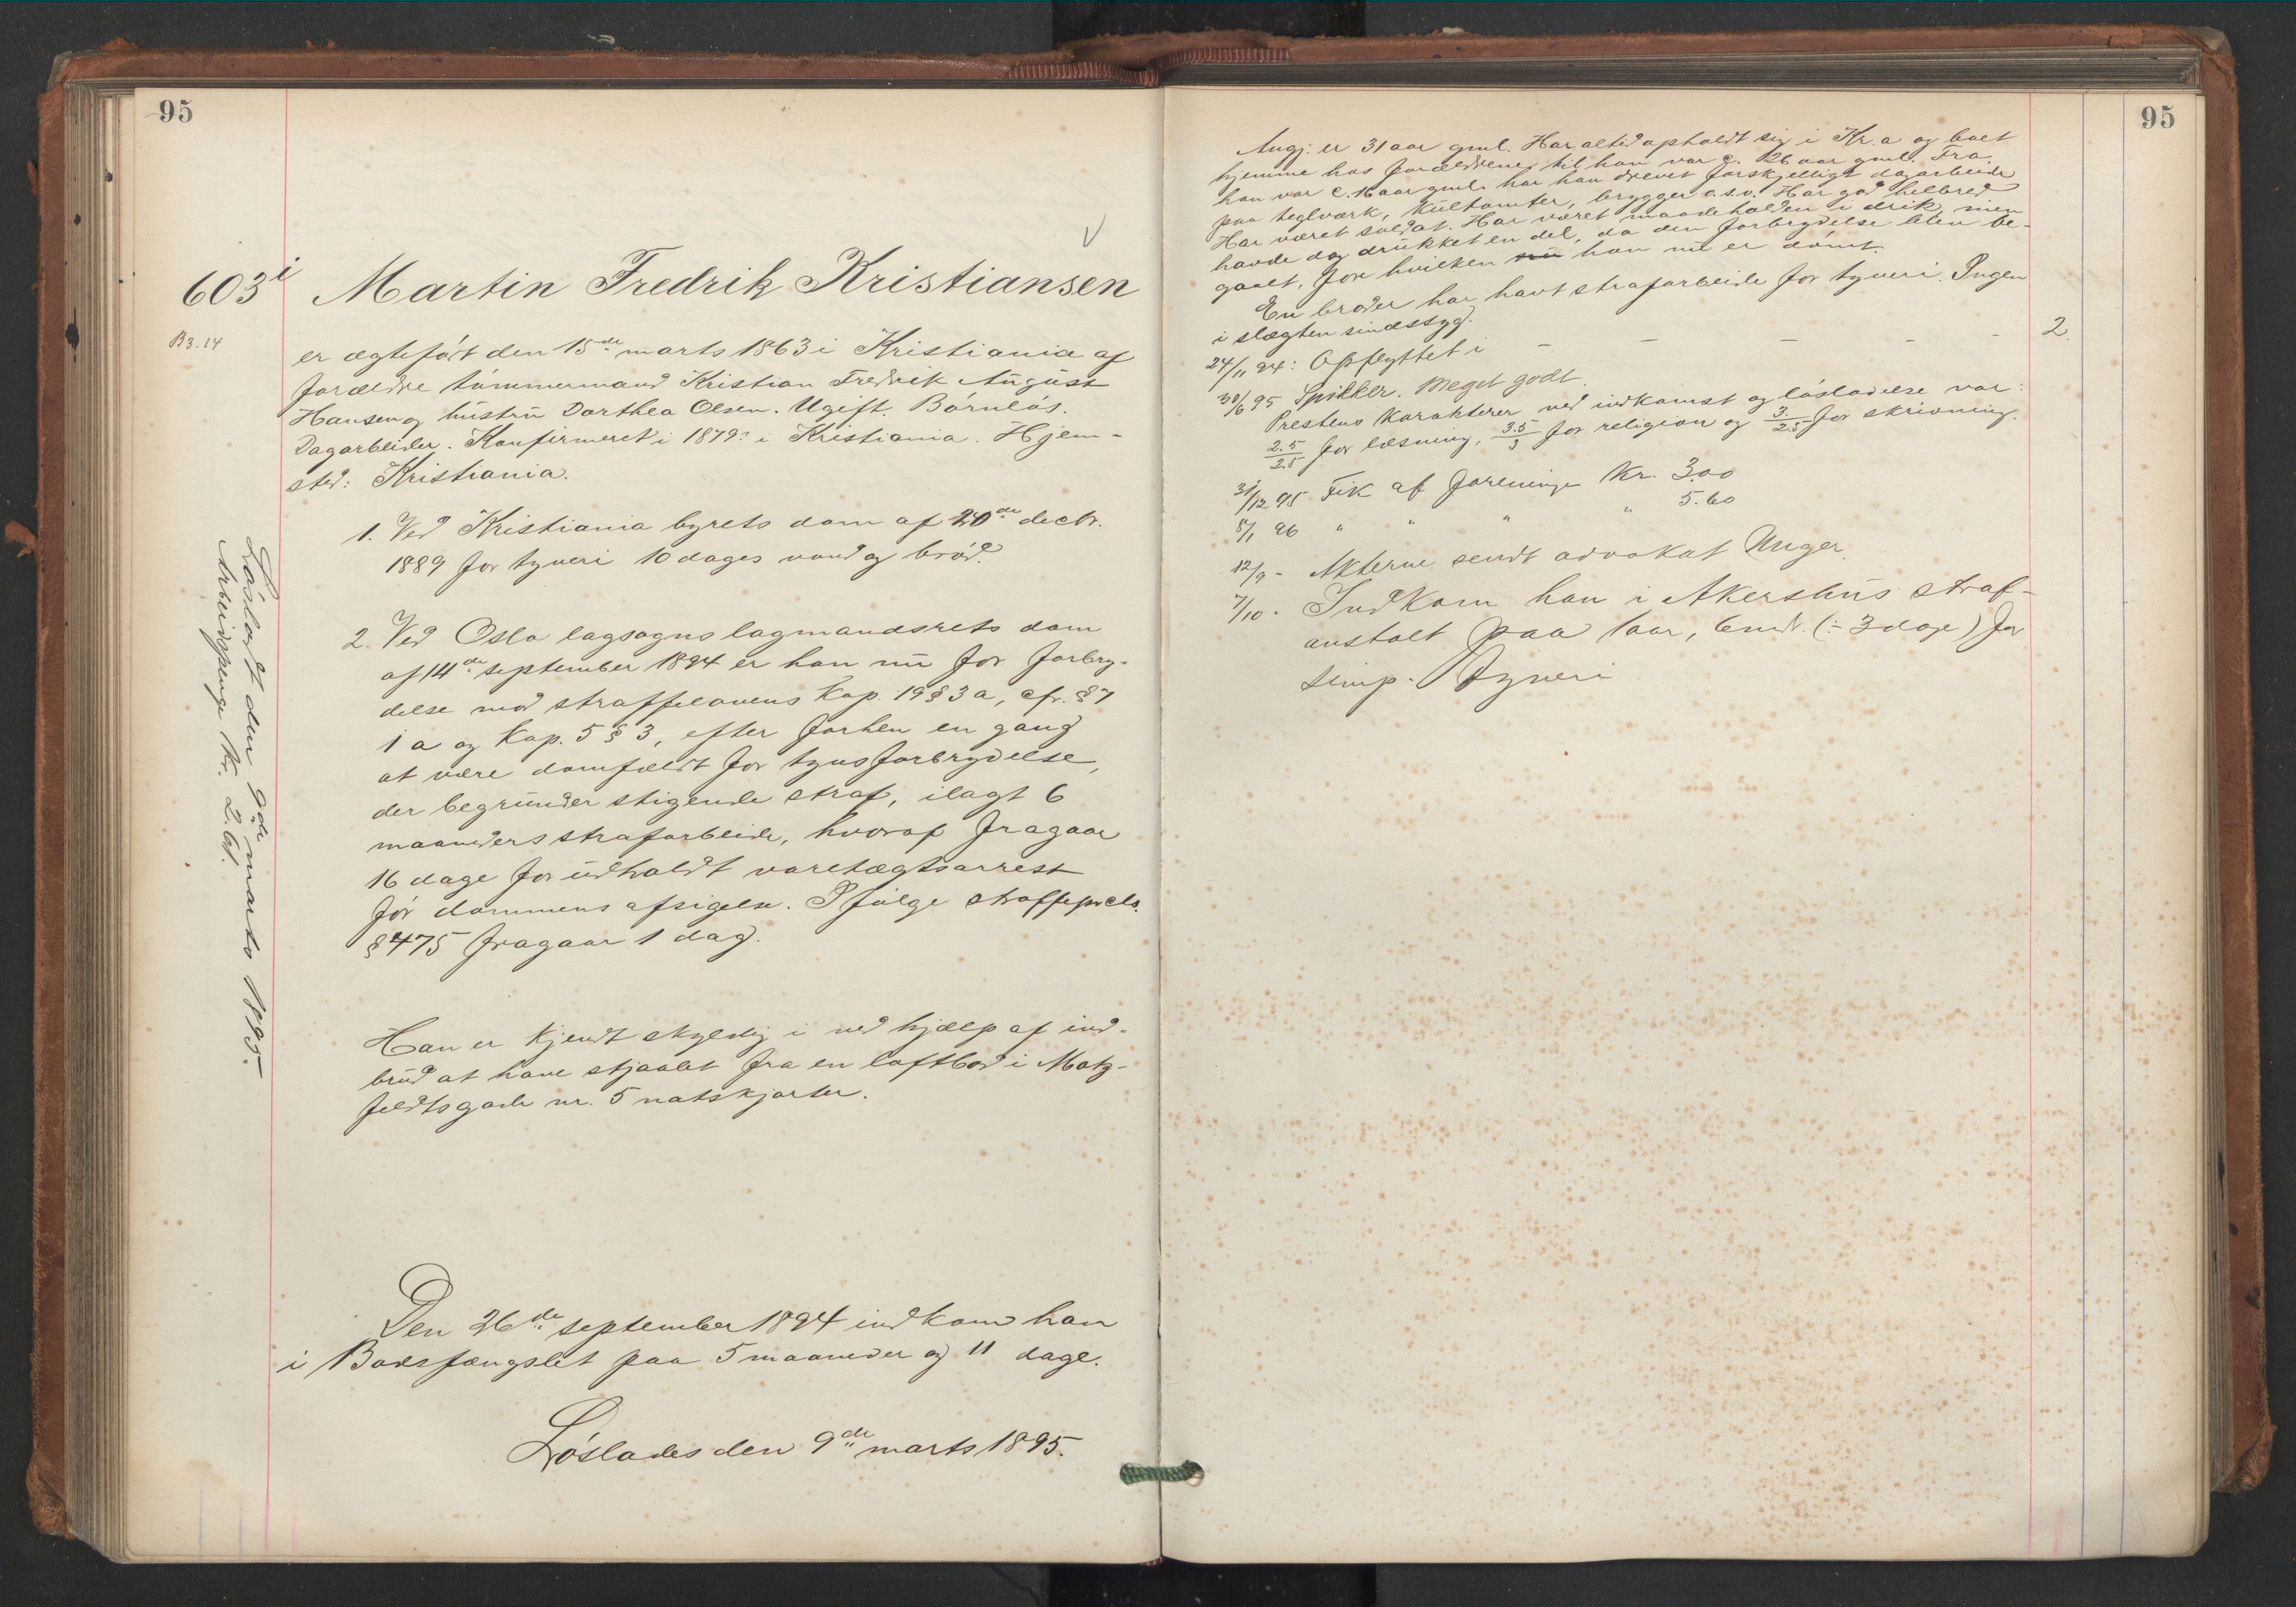 95
603 i Martin Fredrik Kristiansen
B 3.14
er ægtefödt den 15de marts 1863 i Kristiania af
forældre tömmermand Kristian Fredrik August
Hansen og hustru Dorthea Olsen. Ugift. Börnlös.
Dagarbeider. Konfirmeret i 1879 i Kristiania. Hjem-
sted: Kristiania.
1. Ved Kristiania byrets dom af 20de decbr.
1889 for tyveri 10 dages vand og bröd.
2. Ved Oslo lagsogns lagmandsrets dom
af 14de september 1894 er han nu for forbry-
delse mod straffelovens kap. 19 § 3 a, cfr. § 7
1 a og kap. 5 § 3, efter forhen en gang
at være domfældt for tyvsforbrydelse,
der begrunder stigende straf, ilagt 6
maaneders strafarbeide, hvoraf fragaar
16 dage for udholdt varetægtsarrest
för dommens afsigelse. I fölge straffeprcls.
§ 475 fragaar 1 dag.
Han er kjendt skyldig i ved hjælp af ind-
brud at have stjaalet fra en loftbod i Motz-
feldtsgade nr. 5 natskjorter.
Den 26de september 1894 indkom han
i Bodsfængslet paa 5 maaneder og 11 dage.
Löslades den 9de marts 1895.
Lösladt den 9de marts 1895.
Arbeidspenge Kr. 2.61.
95
Angj. er 31 aar gml. Har altid opholdt sig i Kr.a og boet
hjemme hos forældrene, til han var c. 26 aar gml. Fra
han var c. 16 aar gml. har han drevet forskjelligt dagarbeide
paa teglværk, kultomter, brygger o.s.v. Har god helbred
Har været soldat. Har været maadeholden i drik, men
havde dog drukket en del, da den forbrydelse blev be-
gaaet, for hvilken han nu er dömt.
En broder har havt strafarbeide for tyveri. Ingen
i slægten sindssyg.
24/11 94: Opflyttet i – – – – – 2.
30/6 95 Spikker. Meget godt.
Prestens karakterer ved indkomst og lösladelse var:
2.5/2.5 for læsning, 3.5/3 for religion og 3./2.5 for skrivning.
31/12 95 Fik af foreningen Kr. 3.00
8/1 96 " " " " 5.60
12/9 - Akterne sendt advokat Unger.
7/10 - Indkom han i Akershus straf-
anstalt paa 1 aar, 6 mdr. (÷ 3 dage) for
simp. Tyveri